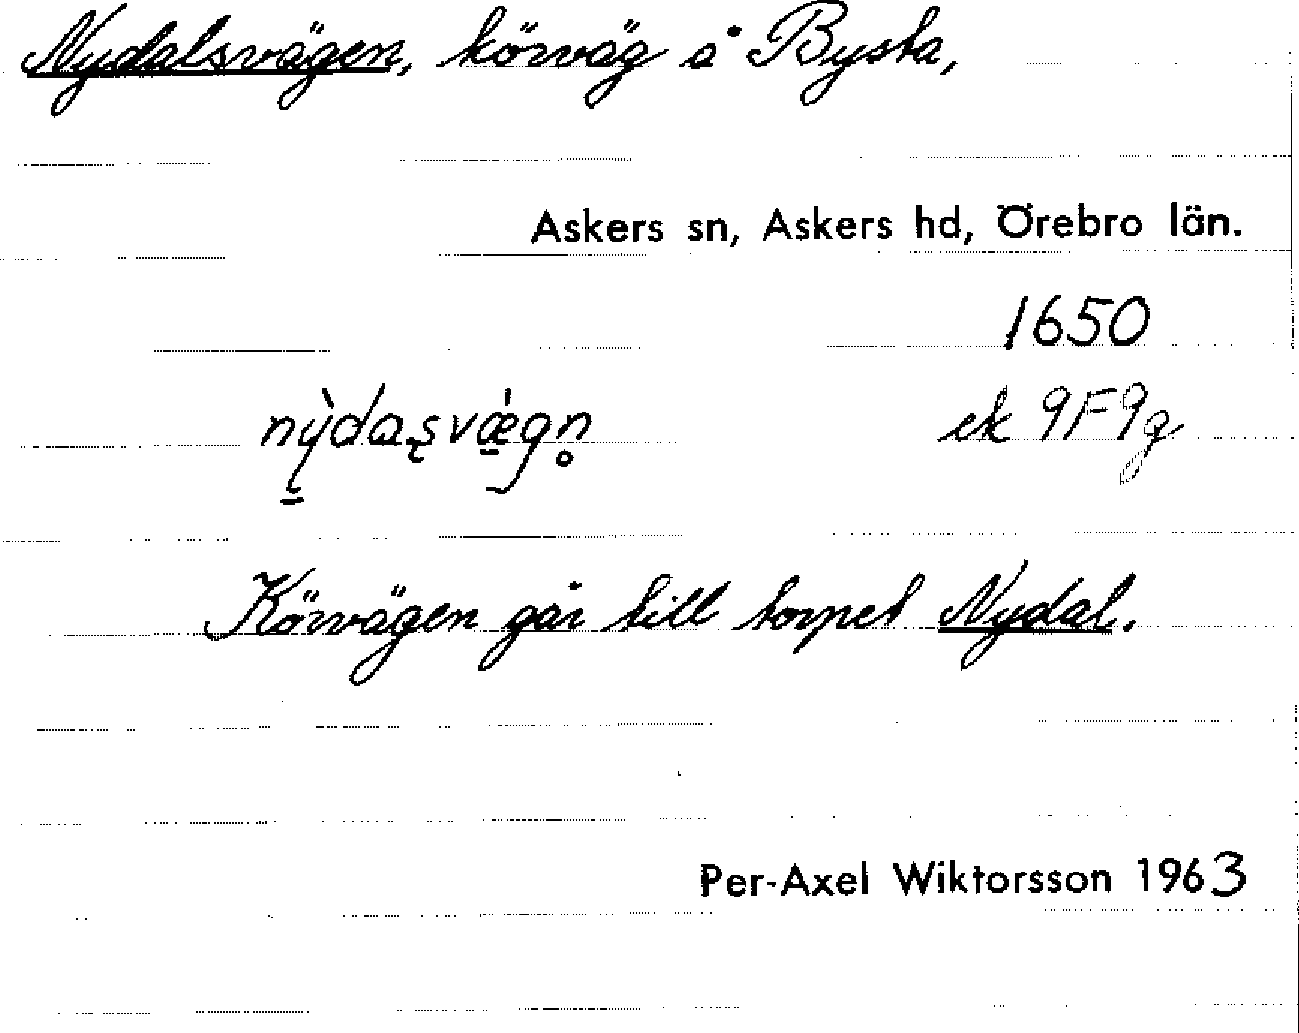 Nydalsvägen, körväg å Bysta,
Askers sn, Askers hd, Örebro län.
1650
nỳdaʂvǽgn̥ ek 9F9g
Körvägen går till torpet Nydal.
Per-Axel Wiktorsson 1963